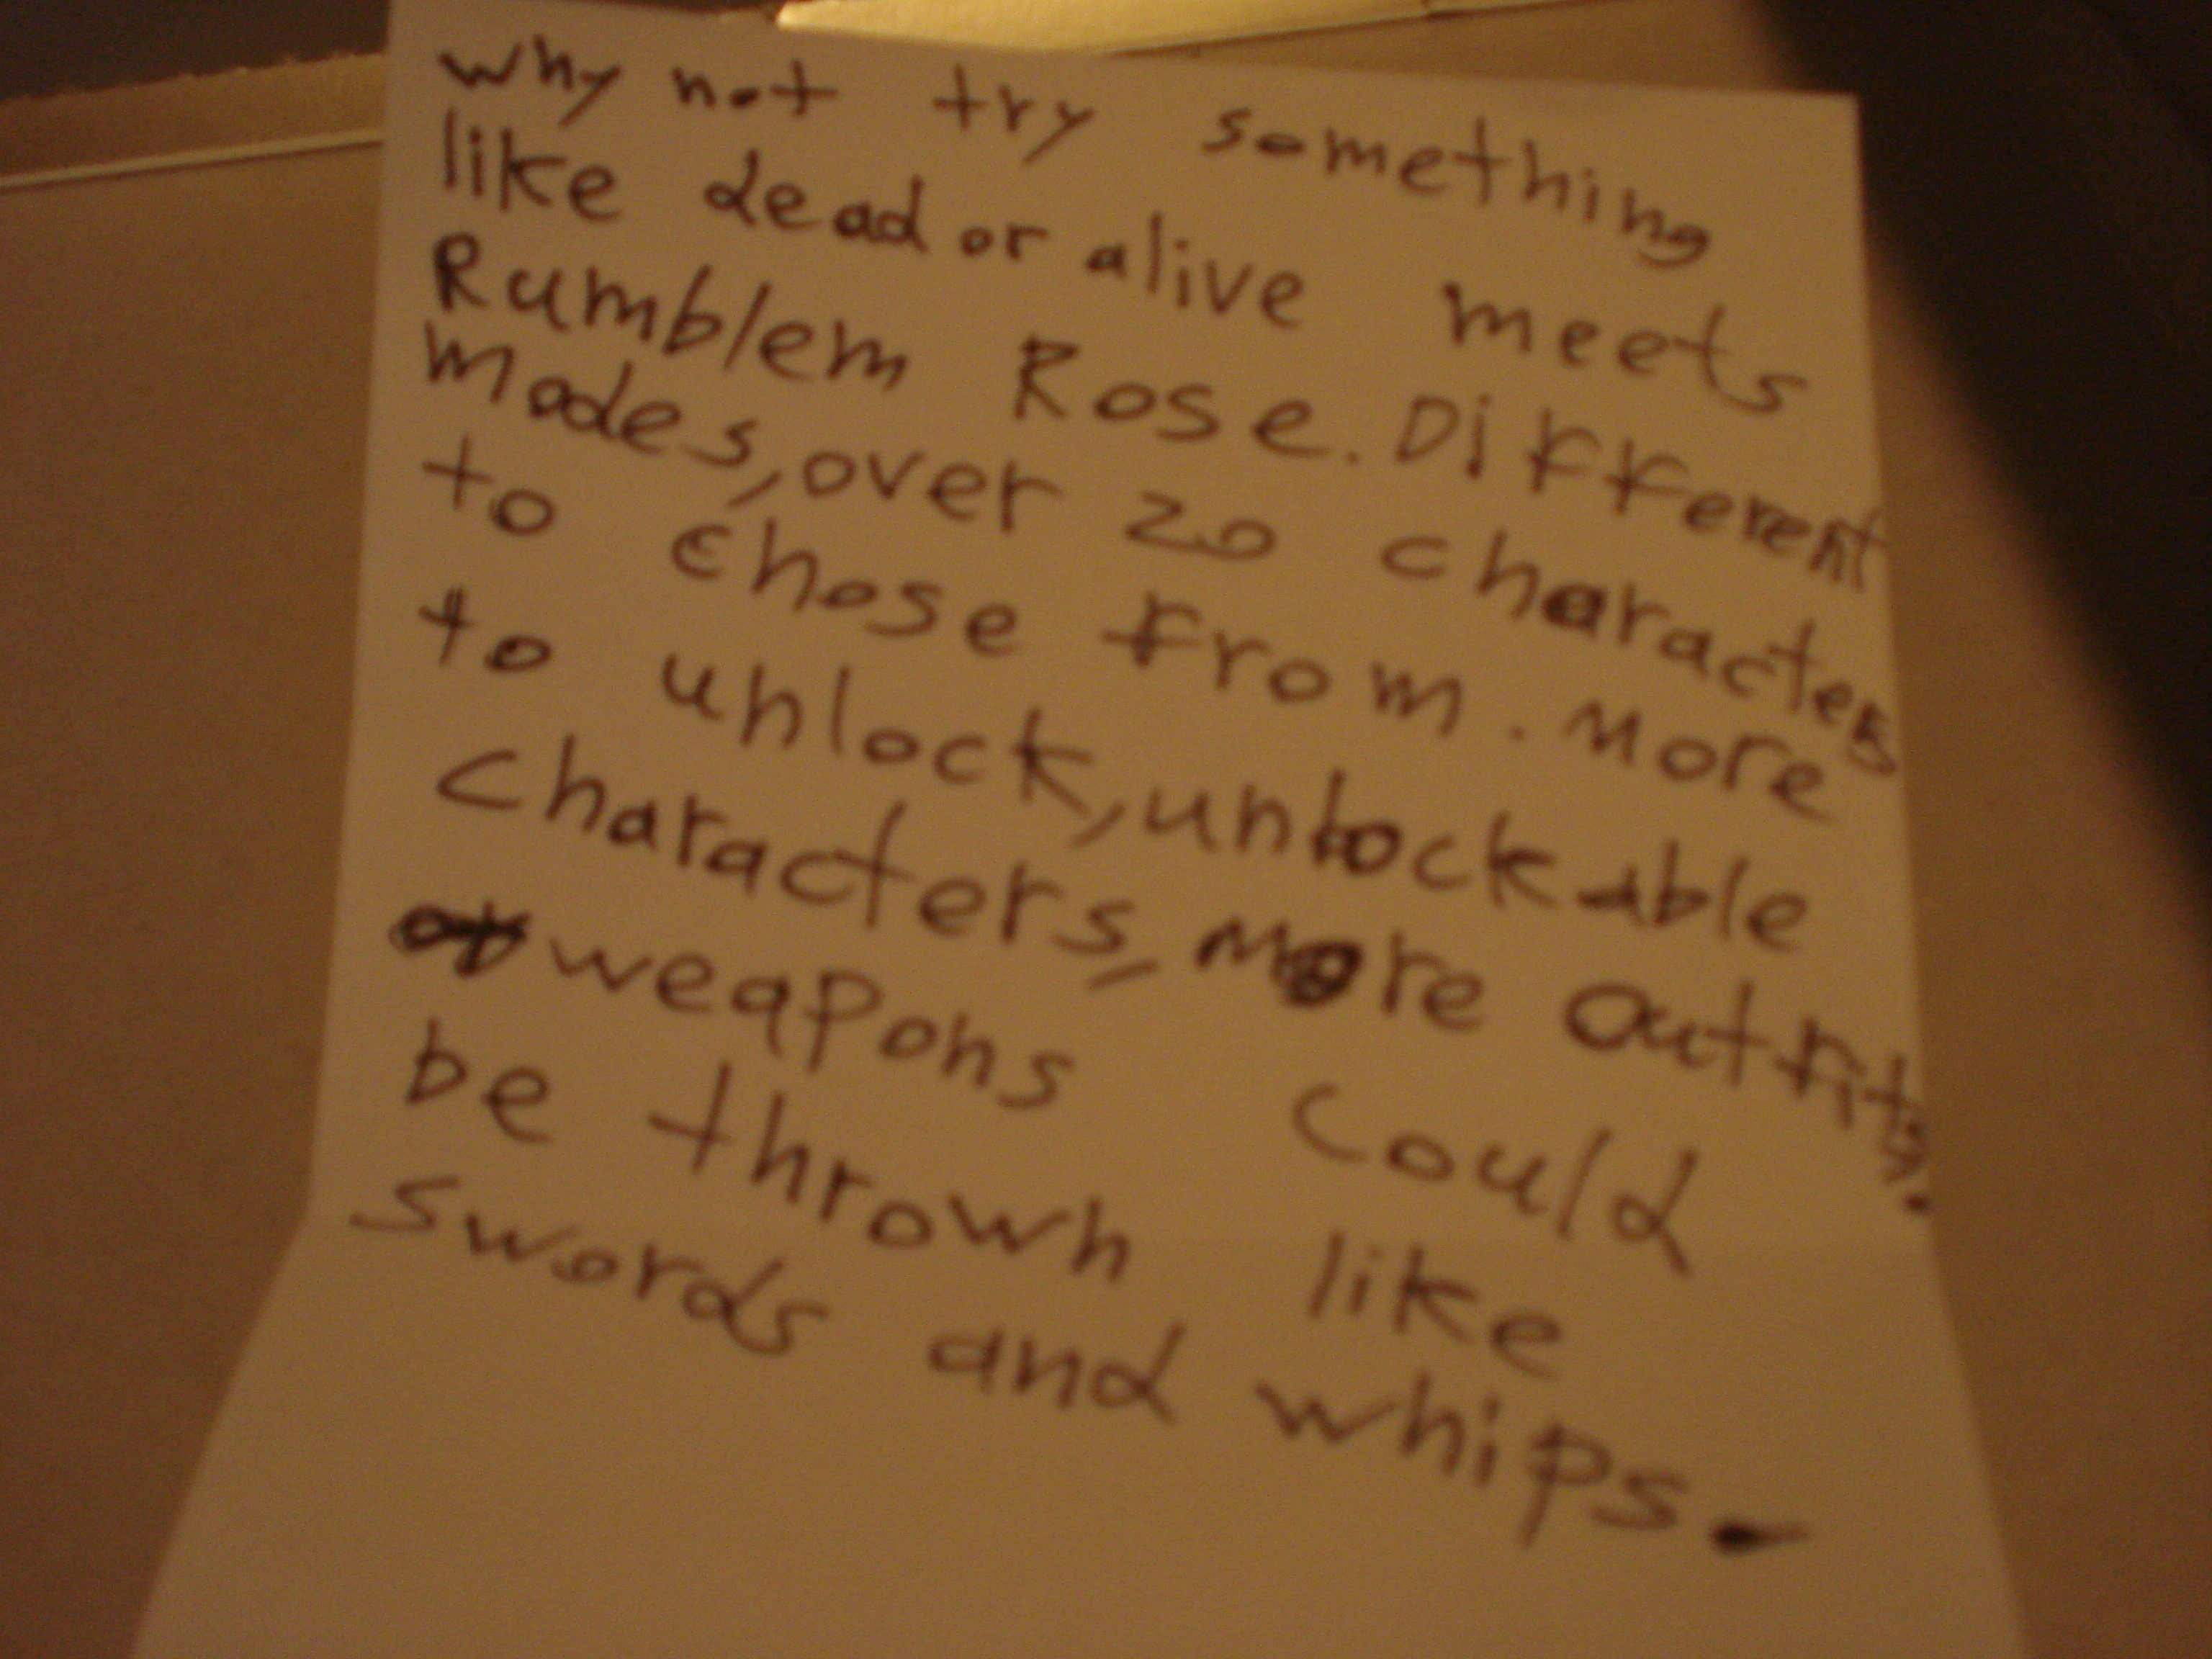 why not try something
like dead or alive meets
Rumblem Rose. Different
modes, over 20 characters
to chose from. More
to unlock, unlockable
characters, more outfits.
weapons could
be thrown like
swords and whips.